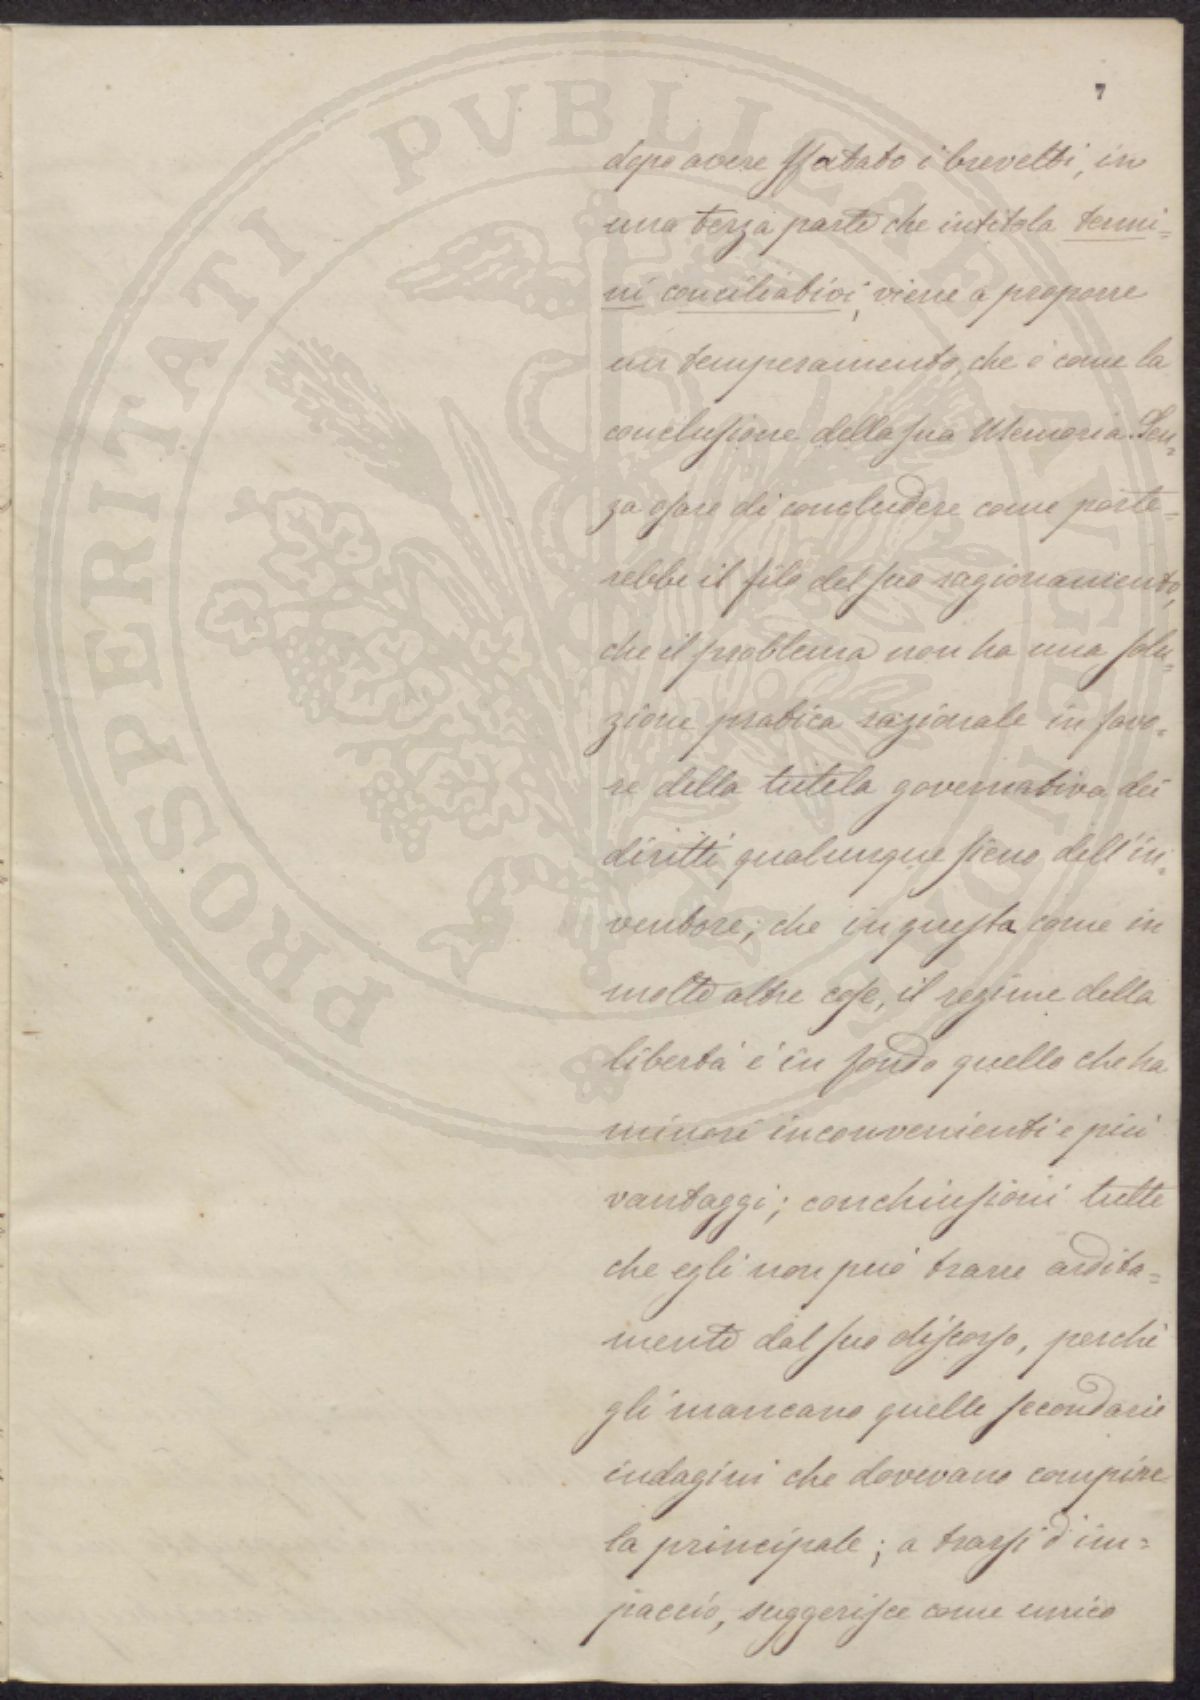 7
dopo avere sfatato i brevetti, in
una terza parte che intitola termi=
ni conciliativi, viene a proporre
un temperamento, che è come la
conclusione della sua Memoria. Sen=
za osare di concludere come porte=
rebbe il filo del suo ragionamento,
che il problema non ha una solu=
zione pratica razionale in favo=
re della tutela governativa dei
diritti qualunque sieno dell'in=
ventore; che in questa come in
molte altre cose, il regime della
libertà è in fondo quello che ha
minori inconvenienti e più
vantaggi; conchiusioni tutte
che egli non può trarre ardita=
mente dal suo discorso, perchè
gli mancano quelle secondarie
indagini che dovevano compire
la principale; a trarsi d'im=
paccio, suggerisce come unico
PROSPERITATI PVBLICAE AVGENDAE